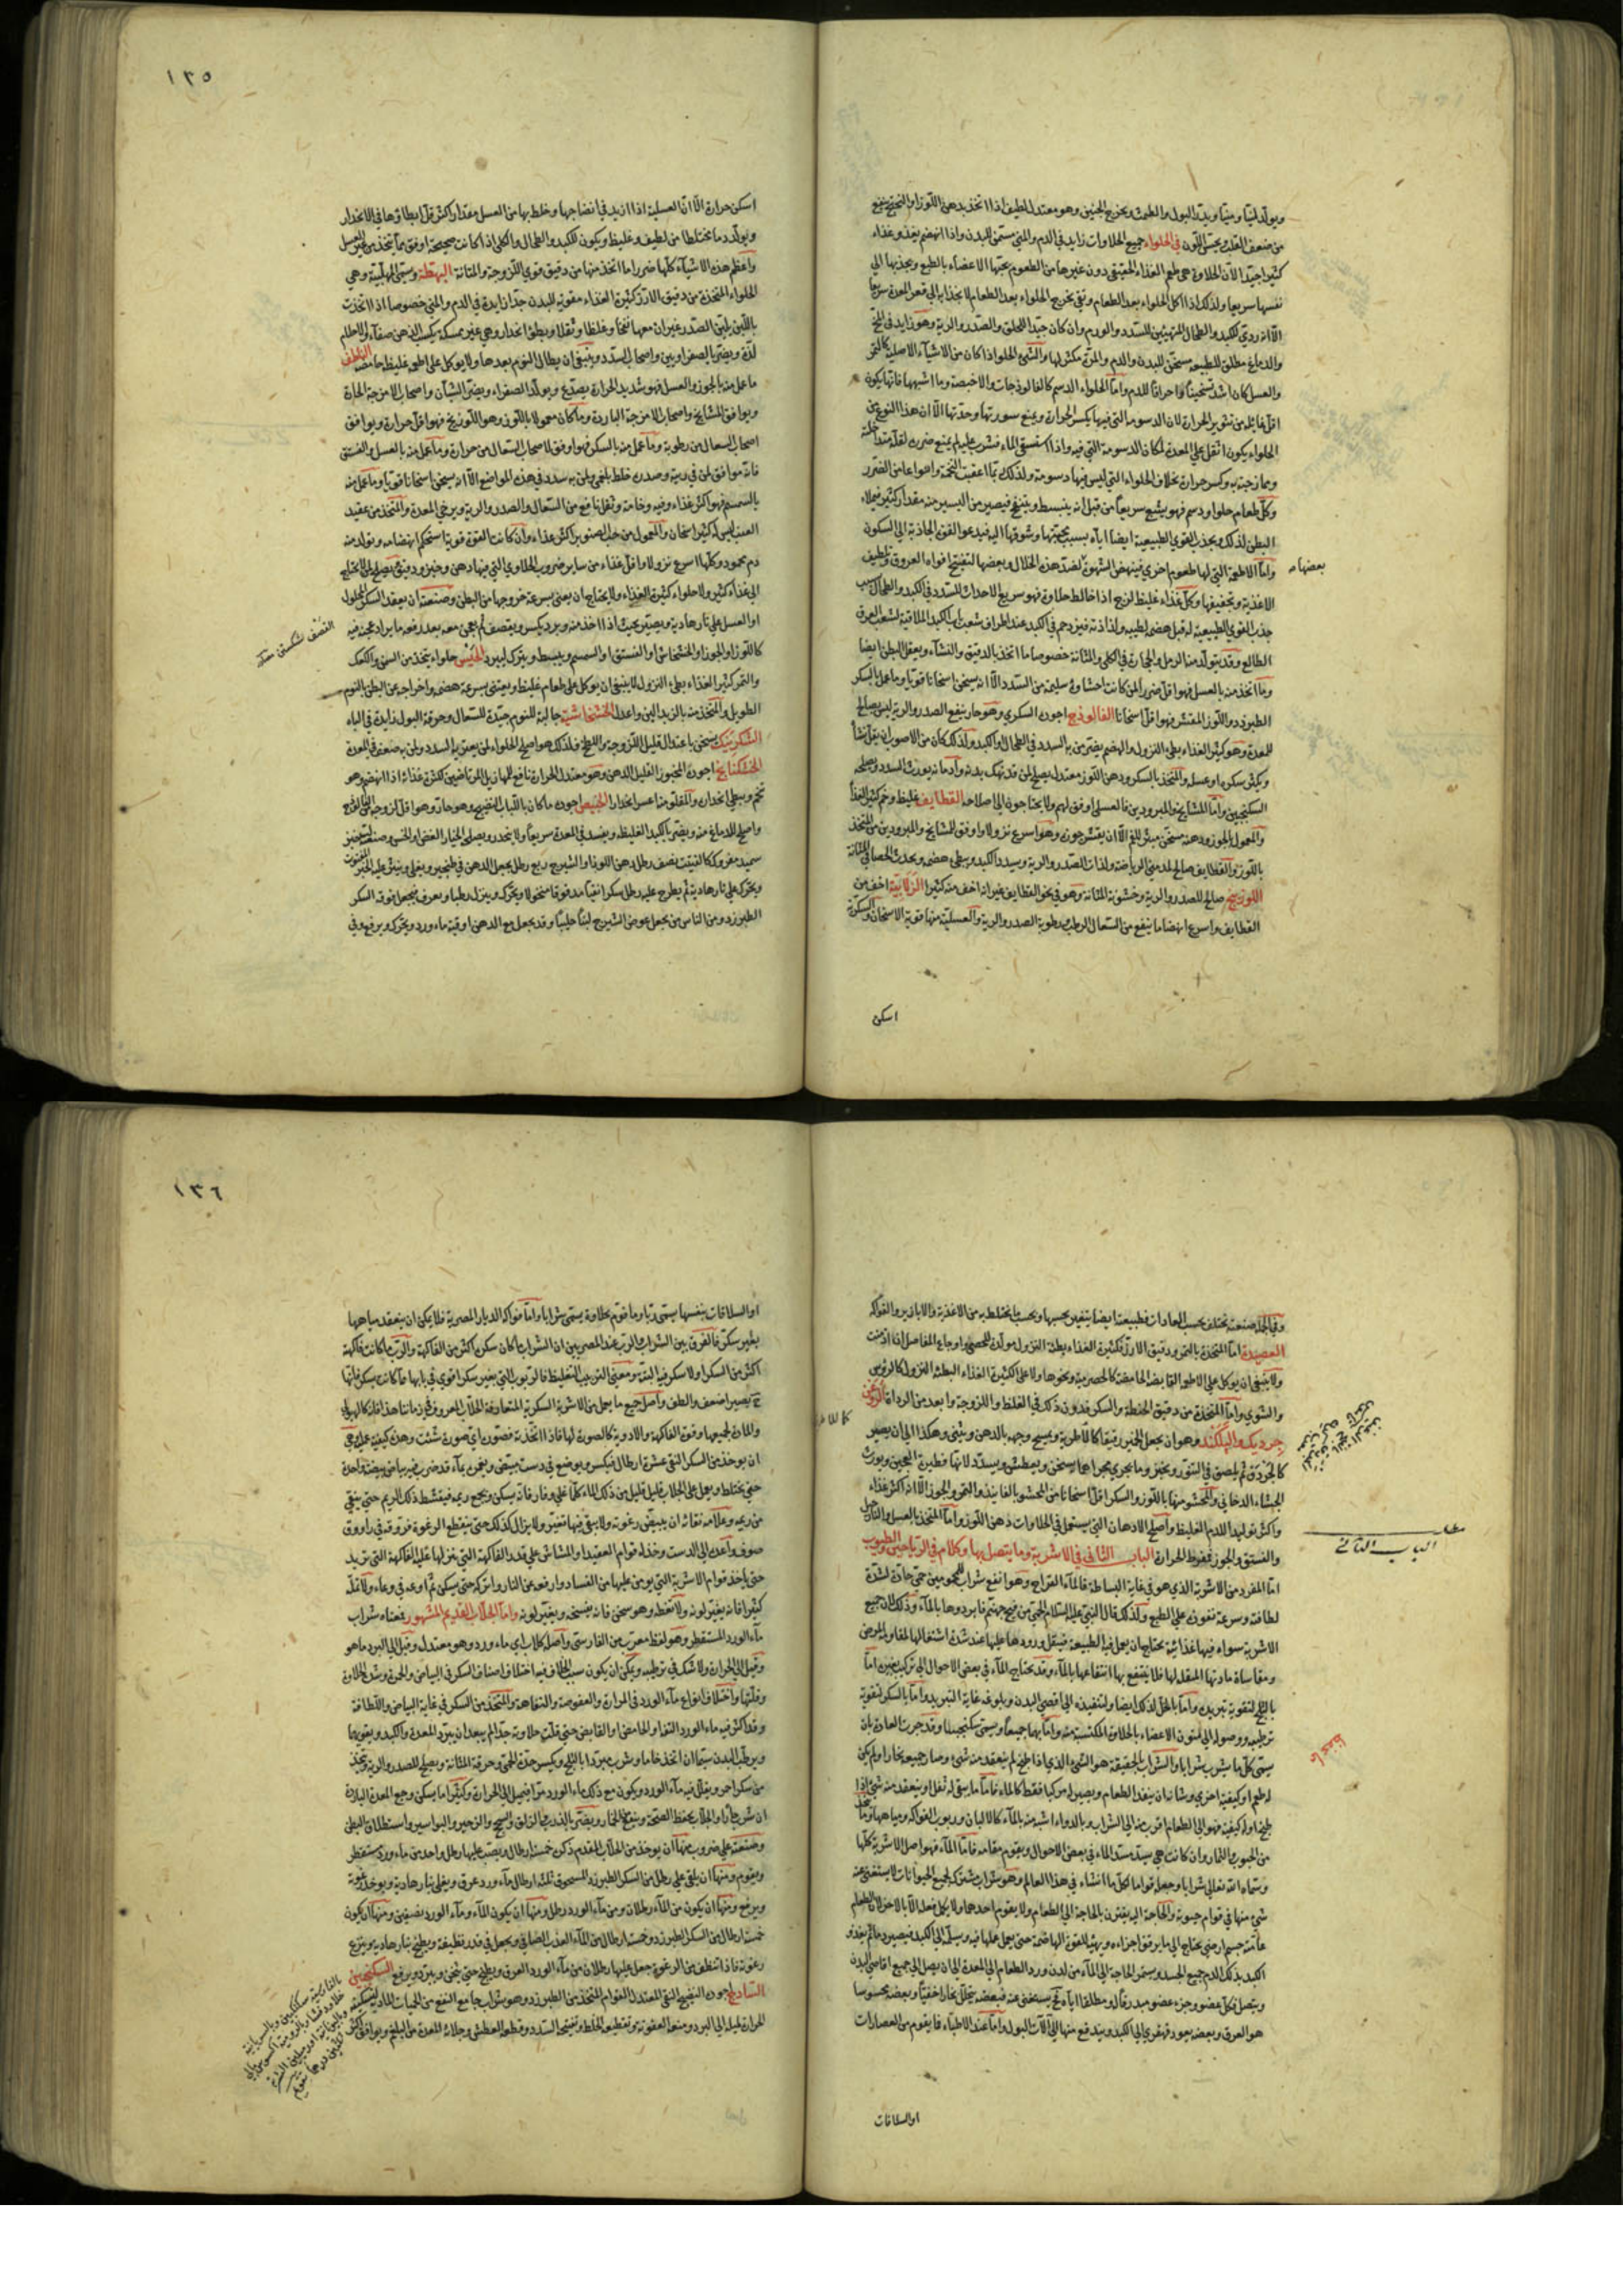 ويولد لبنا ومنيا ويدر البول والطمث ويخرج الجنين وهو معتدل لطيف اذا اتخذ بدهن اللوز
من ضعف القلب ويحسن اللون في الحلواء جميع الحلاوات زايد في الدم والمني مسمن للبدن واذا انهضم يغذو غذاء
كثيرا جيدا لان الحلاوة هي طعم الغذاء الحقيقي دون غيرها من الطعوم يحبها الاعضاء بالطبع ويجذبها الي
نفسها سريعا ولذلك اذا اكل الحلواء بعد الطعام وقي يخرج الحلواء بعد الطعام لانجذابه الي قعر المعدة سريعا
الا انه ردي للكبد والطحال المتهيين للسدد والورم وان كان جيدا للحلق والصدر والرية وهو زايد في المخ
والدماغ مطلق للطبيعة مسخن للبدن والدم والمرة مكثر لها والشي الحلو اذا كان من الاشياء الاصلية كالتمر
والعسل كان اشد تسخينا واحراقا للدم واما الحلواء الدسم كالفالوذجات والاخبصة وما اشبهها فانها يكون
اقل غايلة من تثوير الحرارة لان الدسومة التي فيها يكسر الحرارة ويمنع سورتها وحدتها الا ان هذا النوع من
الحلواء يكون اثقل علي المعدة لمكان الدسومة التي فيه واذا استسقي الماء فشرب عليه لم يمنع ضرره لقلة مداخلته
وممازجته به وكسر حرارة بخلاف الحلواء التي ليس فيها دسومة ولذلك ربما اعقبت التخمة وانواعا من الضرر
وكل طعام حلو او دسم فهو يشبع سريعا من قبل انه ينبسط وينتفخ فيصير من اليسير منه مقدار كثير فيملاء
البطن لذلك ويجذب القوي الطبيعية ايضا اياه بسبب محبتها وشوقها اليه فيدعو القوة الجاذبة الي السكون
واما الاطعمة التي لها طعوم اخري فينهض الشهوة لضد هذه الخلال وبعضها لتفتيح افواه العروق وتلطيف
بعضها
الاغذية وتجفيفها وكل غذاء غليظ لزج اذا خالط حلاوة فهو سريع الاحداث للسدد في الكبد والطحال بسبب
جذب القوي الطبيعية له قبل هضمه لطيبه ولذاذته فيزدحم في الكبد عند اطراف شعب باب الكبد الملاقية لشعب العرق
الطالع وقد يتولد منه الرمل والحجارة في الكلي والمثانة خصوصا ما اتخذ بالدقيق والنشاء ويعقل البطن ايضا
وما اتخذ منه بالعسل فهو اقل ضررا لمن كانت احشاؤه سليمة من السدد الا انه يسخن اسخانا قويا وما عمل بالسكر
الطبرزد واللوز المقشر فهو اقل اسخانا الفالوذج اجوده السكري وهو حار ينفع الصدر والرية ليس بصالح
للمعدة وهو كثير الغذاء بطي النزول والهضم يضر من به السدد في الطحال والكبد ولذلك كان من الاصوب ان يقل نشأه
ويكثر سكره او عسله والمتخذ بالسكر ودهن اللوز معتدل يصلح لمن قد نهك بدنه وادمانه يورث السدد ويصلحه
السكنجبين واما المشايخ والمبرودين فالعسلي اوفق لهم ولا يحتاجون الي اصلاحه القطايف غليظ وخم كثير الغذا
والمعمول بالجوز ودهنه مسخن مبثر للفم الا ان يقشر جوزه وهو اسرع نزولا واوفق للمشايخ والمبرودين من المتخذ
باللوز والقطايف صالح لمدمني الرياضة ولذات الصدر والرية ويسدد الكبد ويبطي هضمه ويحدث الحصا في المثانة
اللوزينج صالح للصدر والرية وخشونة المثانة وهو في نحو القطايف غير انه اخف منه كثيرا الزلابية اخف من
القطايف واسرع انهضاما ينفع من السعال الرطب ورطوبة الصدر والرية والعسلية منها قوية الاسخان والسكرية
اسكن
١٣٥
اسكن حرارة الا ان العسلية اذا ازيد في انضاجها وخلط بها من العسل مقدار اكثر قل ابطاؤها في الانحدار
ويولد دما مختلطا من لطيف وغليظ ويكون للكبد والطحال والكلي اذا كانت صحيحة اوفق مما تتخذ من غير العسل
واعظم هذه الاشياء كلها ضررا ما اتخذ منها من دقيق قوي اللزوجة والمتانة البهطة وتسمي المهلبية وهي
الحلواء المتخذة من دقيق الارز كثيرة الغذاء مقوية للبدن جدا زايدة في الدم والمني خصوصا اذا اتخذت
باللبن يلين الصدر غير ان معها نفخا وغلظا وثقلا وبطئ انحدار وهي غير ممسكة يكسب الذهن صفاء والاحلام
لذة ويضر بالصفراويين واصحاب السدد وينبغي ان يطال النوم بعدها ولا يوكل علي اطعمة غليظة حامضة الناطف
ما عمل منه بالجوز والعسل فهو شديد الحرارة يصدع ويولد الصفراء ويضر الشبان واصحاب الامزجة الحارة
ويوافق المشايخ واصحاب الامزجة الباردة وما كان معمولا باللوز وهو اللوزينج فهو اقل حرارة ويوافق
اصحاب السعال من رطوبة وما عمل منه بالسكر فهو اوفق لاصحاب السعال من حرارة وما عمل منه بالعسل والفستق
فانه موافق لمن في ريته وصدره خلط بلغمي ولمن به سدد في هذه المواضع الا انه يسخن اسخانا قويا وما عمل منه
بالسمسم فهو اكثر غذاء وفيه وخامة وثقل نافع من السعال والصدر والرية ويرخي المعدة والمتخذ من عقيد
العنب ليس له كثير اسخان والمعمول من حب الصنوبر اكثر غذاء وان كانت القوة قويا استحكم انهضامه وتولد منه
دم محمود وكلها اسرع نزولا واقل غذاء من ساير ضروب الحلاوي التي فيها دهن وخبز ودقيق يصلح لمن لا يحتاج
الي غذاء كثير ولا حلواء كثيرة الغذاء ولا يحتاج ان يعني بسرعة خروجها من البطن وصنعته ان يعقد السكر المحلول
او العسل علي نار هادية ويصير بحيث اذا اخذ منه وبرد يكسر ويقصف ثم يعجن معه بعد رفعه ما يراد عجنه فيه
كاللوز او الجوز او الخشخاش او الفستق او السمسم ويبسط ويترك ليبرد الحيس حلواء يتخذ من السمن والكعك
والتمر كثير الغذاء بطيء النزول لا ينبغي ان يوكل علي طعام غليظ ويعتني بسرعة هضمه واخراجه عن البطن بالنوم
الطويل والمتخذ منه بالزبد الين واعدل الخشخاشية جالبة للنوم جيدة للسعال وحرقة البول زايدة في الباه
يسخن باعتدال قليل اللزوجة والنفخ ولذلك هو اصلح الحلواء لمن يعتريه السدد ولمن به ضعف في المعدة
الخشكنانج اجوده المخبوز القليل الدهن وهو معتدل الحرارة نافع للمهازيل المرتاضين لكثرة غذائه اذا انهضم وهو
تخم ويبطي انحداره والمقلو منه اعسر انحدارا الخبيص اجوده ما كان باللباب النضيج وهو حار وهو اقل لزوجة من الفالوذج
واصلح للدماغ منه ويضر بالكبد الغليظة ويفسد في المعدة سريعا ولا ينحدر ويصلحه الخيار الغض والخس وصنعته خبز
سميد مفروك كالفتيت نصف رطل دهن اللوز او الشيرج ربع رطل يجعل الدهن في طنجير ويغلي وينثر عليه الخبز المفتوت
ويحرك علي نار هادية ثم يطرح عليه رطل سكرا نقيا مدقوقا منخولا ويحرك وينزل رطبا ويعرف ثم يجعل فوقه السكر
الطبرزد ومن الناس من يجعل عوض الشيرج لبنا حليبا وقد يجعل مع الدهن اوقية ماء ورد ويحرك ويرفع وفي
وفي الجملة صنعته تختلف بحسب العادات فطبيعته ايضا يتغير بحسبها وبحسب ما يختلط به من الاغذية والابازير والفواكه
العصيدة اما المتخذة بالتمر ودقيق الارز فكثيرة الغذاء بطيئة النزول مولدة للحصي واوجاع المفاصل اذا ادمنت
ولا ينبغي ان يوكل علي الاطعمة القابضة الحامضة كالحصرمية ونحوها ولا علي الكثيرة الغذاء البطئة النزول كالرؤس
والشوي واما المتخذة من دقيق الحنطة والسكر فدون ذلك في الغلظ واللزوجة وابعد من الرداة
وهو ان يجعل الخبز رقيقا كالاطرية ويمسح وجهه بالدهن ويثني وهكذا الي ان يصير
كالجردق ثم يلصق في التنور ويخبز وما يجري مجراهما يسخن ويعطش ويسدد لانها فطيرة العجين ويورث
الجشاء الدخاني والمحشو منها باللوز والسكر اقل اسخانا من المحشو بالفانيذ والتمر والجوز الا انه اكثر غذاء
واكثر توليدا للدم الغليظ واصلح الادهان التي يستعمل في الحلاوات دهن اللوز واما المتخذ بالعسل والنارجيل
والفستق والجوز فمفرط الحرارة الباب الثاني في الاشربة وما يتصل بها وكلام في الرياحين والطيوب
الباب الثاني
اما المفرد من الاشربة الذي هو في غاية البساطة فالماء القراح وهو انفع شراب للمحمومين حمي حادة لشدة
لطافته وسرعة نفوذه علي الطبع ولذلك قال النبي عليه السلام الحمي من فيح جهنم فابردوها بالماء وذلك لان جميع
الاشربة سواه فيها غذائية يحتاج ان يعمل فيها الطبيعة فيثقل ورودها عليها عند شدة اشتغالها لمقاومة المرض
ومقاساة مادتها المثقلة لها فلا ينتفع بها انتفاعها بالماء وقد يحتاج الماء في بعض الاحوال الي تركيب بغيره اما
بالثلج لتقوية تبريده واما بالخل لذلك ايضا ولتنفيذه الي اقصي البدن وبلوغه غاية التبريد واما بالسكر لتقوية
ترطيبه ووصوله الي غضون الاعضاء بالحلاوة المكتسبة منه واما بهما جميعا ويسمي سكنجبينا وقد جرت العادة بان
يسمي كل ما يشرب شرابا والشراب بالحقيقة هو الشيء الذي اذا طبخ لم ينعقد منه شيء وصار جميعه بخارا ولم يكن
له طعم او كيفية اخري وشانه ان ينفذ الطعام ويصير له مركبا فقط كالماء فاما ما يبقي له ثفل او ينعقد منه شيء اذا
طبخ او له كيفية فهو الي الطعام اقرب منه الي الشراب وبالدواء اشبه منه بالماء كالالبان وربوب الفواكه ومياهها
من الحبوب والثمار وان كانت هي يسد مسد الماء في بعض الاحوال ويقوم مقامه فاما الماء فهو اصل الاشربة كلها
وسماه الله تعالي شرابا وجعله قواما لكل ما انشاء في هذا العالم وهو شراب مشترك لجميع الحيوانات لا يستغني عنه
شيء منها في قوام حيوته والحاجة اليه يقترن بالحاجة الي الطعام ولا يقوم احدهما ولا يكمل فعله الا بالاخر لان الطعام
عامته جسم ارضي يحتاج الي ما يرقق اجزاءه ويهيئه للقوة الهاضمة حتي يعمل عملها فيه ويسلمه الي الكبد فيصير دما ثم يغذو
الكبد بذلك الدم جميع الجسد ويستمر الحاجة الي الماء من لدن ورد الطعام الي المعدة الي ان يصل الي جميع اقاصي البدن
ويتصل بكل عضو وجزء عضو مبذرقا له ومطلقا اياه ثم يستغني عنه فبعضه يتحلل بخارا خفيا وبعضه محسوسا
هو العرق وبعضه يعود قهقري الي الكبد ويندفع منها الي آلات البول واما عند الاطباء فما يقوم من العصارات
او السلاقات
١٣٦
او السلاقات بنفسها يسمي ربا وما قوم بحلاوة يسمي شرابا واما فواكه الديار المصرية فلا يمكن ان ينعقد مياهها
بغير سكر فالفرق بين الشراب والرب عند المصريين ان الشراب ما كان سكره اكثر من الفاكهة والرب ما كانت فاكهة
اكثر من السكر او لا سكر فيه البتة ومعني التربيب التغليظ فالربوب التي بغير سكر اقوي في بابها مما كانت بسكر فانها
ح يصير اضعف والطف واصل جميع ما يعمل من الاشربة السكرية المتعارفة الجلاب المعروف في زماننا هذا فانه كالهيولي
والمادة لجميعها وقوة الفاكهة والادوية كالصورة لها فاذا اتخذته فصوره اي صورة شئت وهذه كيفية عمله هي
ان يوخذ من السكر النقي عشرة ارطال فيكسر ويوضع في دست مبيض ويغمر بماء قد ضرب فيه بياض بيضة واحدة
حتي يختلط ويعمل علي الجلاب قليل قليل من ذلك الماء كلما غلي وفار فانه يسكن ويجمع ريمه فيقشط ذلك الريم حتي ينقي
من ريمه وعلامة نقائه ان يبيض رغوته ولا يبقي فيها تغير ولا يزال كذلك حتي ينقطع الرغوة فروقه في راووق
صوف واعده الي الدست وخذ له قوام العقيد او المشاش علي قدر الفاكهة التي يغزلها عليه الفاكهة التي تريد
حتي ياخذ قوام الاشربة التي يومن عليها من الفساد وارفعه عن النار واتركه حتي يسكن ثم اوعه في وعاء ولا تقله
كثيرا فانه يغير لونه ولا تغطه وهو سخن فانه يفسخه ويغير لونه واما الجلاب القديم المشهور فمعناه شراب
ماء الورد المستقطر وهو لفظ معرب من الفارسي واصله كلاب اي ماء ورد وهو معتدل وقيل الي البرد ما هو
وقيل الي الحرارة ولا شك في ترطيبه ويمكن ان يكون سبب الخلاف فيه اختلاف اصناف السكر في البياض والحمرة وشدة الحلاوة
وقلتها واختلاف انواع ماء الورد في المرارة والعفوصة والتفاهة والمتخذ من السكر في غاية البياض واللطافة
وقد اكثر فيه ماء الورد التفه او الحامض او القابض حتي قلت حلاوته جدا لم يبعد ان يبرد المعدة والكبد ويقويهما
ويرطب البدن سيما ان اتخذ خاما وشرب مبردا بالثلج ويكسر حدة الحمي وحرقة المثانة ويصلح للصدر والرية ومتخذ
من سكر احمر ويقلل فيه ماء الورد ويكون مع ذلك ماء الورد مرا فيميل الي الحرارة وكثيرا ما يسكن وجع المعدة الباردة
ان شرب حارا والجلاب يحفظ الصحة وينفع الخمار ويضر بالذرب والزلق والسحج والزحير والبواسير واستطلاق البطن
وصنعته علي ضروب منها ان يوخذ من الجلاب المقدم ذكره خمسة ارطال ويصب عليها رطل واحد من ماء ورد مستقطر
ويقوم ومنها ان يلقي علي رطل من السكر الطبرزد المسحوق ثلثة ارطال ماء ورد عرق ويغلي بنار هادية ويوخذ رغوته
ويرفع ومنها ان يكون من الماء رطلان ومن ماء الورد رطل ومنها ان يكون الماء وماء الورد نصفين ومنها ان يكون
خمسة ارطال من السكر الطبرزد وخمسة ارطال من الماء العذب الصافي ويجعل في قدر نظيفة ويطبخ بنار هادية وينزع
رغوته فاذا تنظف من الرغوة جعل عليها رطلان من ماء الورد العرق ويطبخ حتي يثخن ويبرد ويرفع السكنجبين
الساذج اجوده النضيج النقي المعتدل القوام المتخذ من الطبرزد وهو شراب جامع النفع من الحميات المادية لتسكينه
الحرارة لميله الي البرد ومنعه العفونة وتقطيعه الخلط وتفتيحه السدد وقطعه العطش وجلائه المعدة من البلغم ويوافق